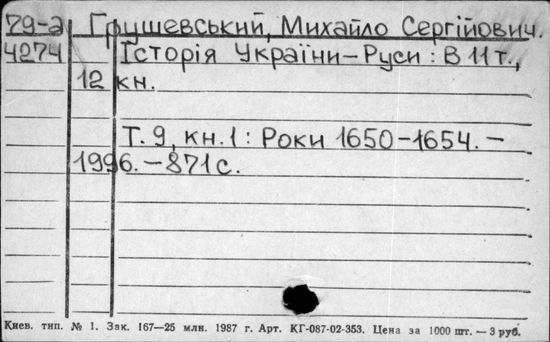 79-а Грушевський, Михайло Сергійович.
4274 Історія України-Руси: В 11 т.,
12 кн.
Т. 9, кн. 1: Роки 1650-1654. –
1996. – 871 с.
Киев. тип. № 1. Зак. 167—25 млн. 1987 г. Арт. КГ-087-02-353. Цена за 1000 шт. — 3 руб.